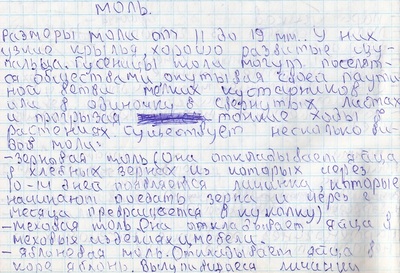 МОЛЬ.
Размеры моли от 11 до 19 мм.. У них
узкие крылья, хорошо развитые щу-
пальца. Гусеницы моли могут поселят-
ся обществами, опутывая своей паути
ной ветви мелких кустарников
или в одиночку в свернутых листах
и прогрызая тонкие ходы в
растениях. Существует несколько ви-
вов моли:
-зерновая моль (Она откладывает яйца
в хлебных зернах из которых через
10-14 дней появляется личинка, которые
начинают поедать зерна и через 2
месяца превращается в куколку)
-меховая моль. Она откладывает яйца в
меховых изделиях и мебели.
-яблоневая моль. Откладывает яйца в
коре яблонь. Вылупившиеся личинки